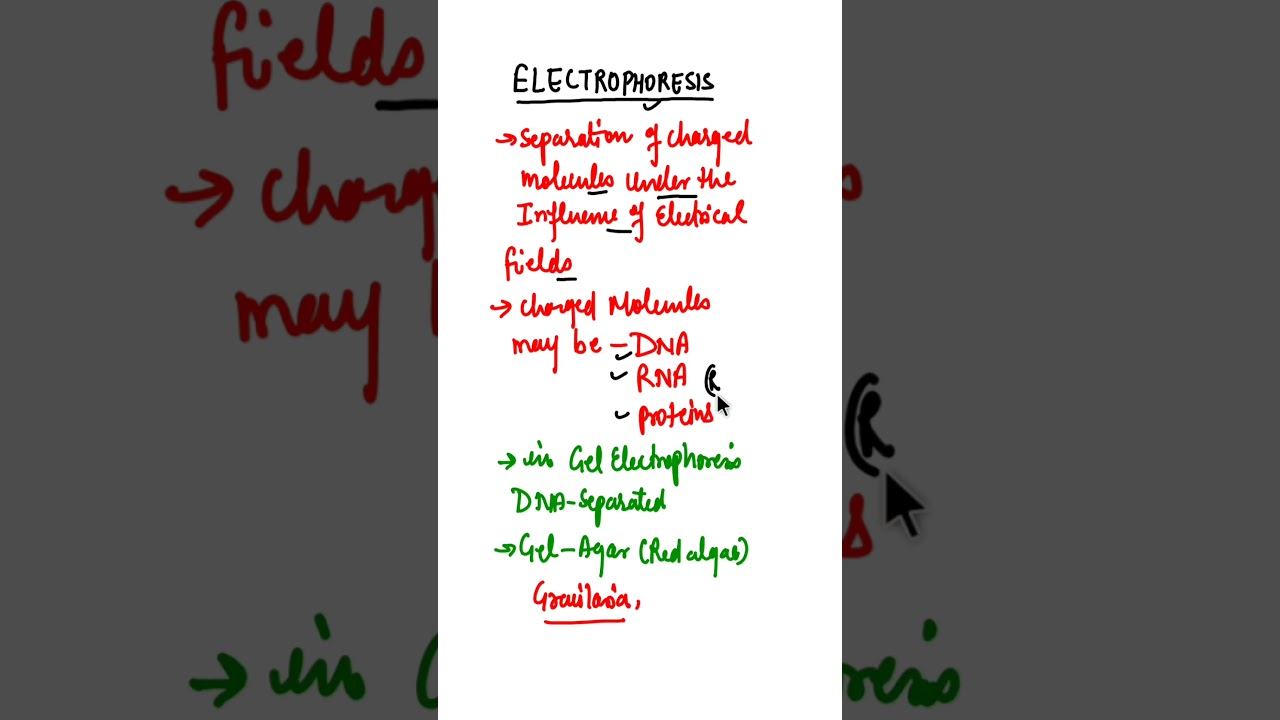 ELECTROPHORESIS
→ Separation of charged
molecules under the
Influence of Electrical
fields
→ charged Molecules
may be - DNA
RNA (R
proteins
→ in Gel Electrophoresis
DNA-Separated
→ Gel-Agar (Red algae)
Gracilaria,